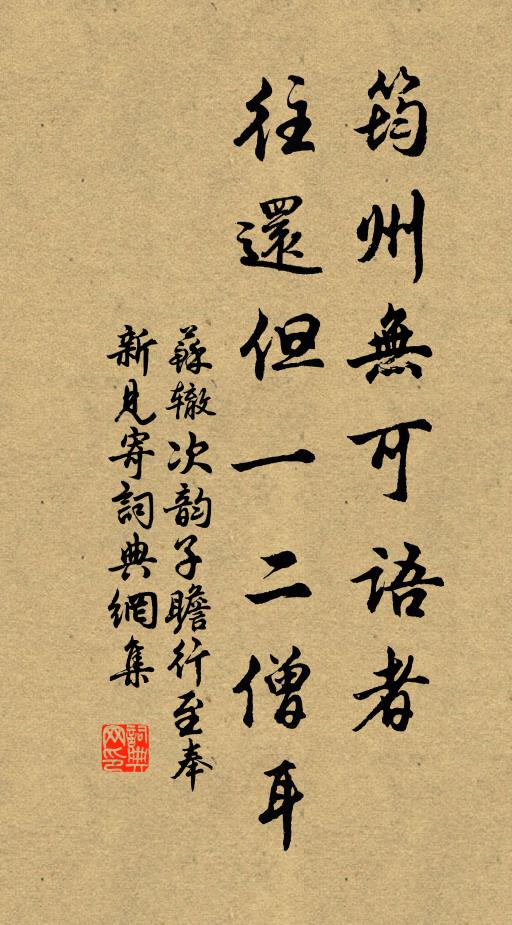 筠州無可語者
往還但一二僧耳
蘇辙次韵子瞻行至奉
新見寄詞典網集
詞典网印